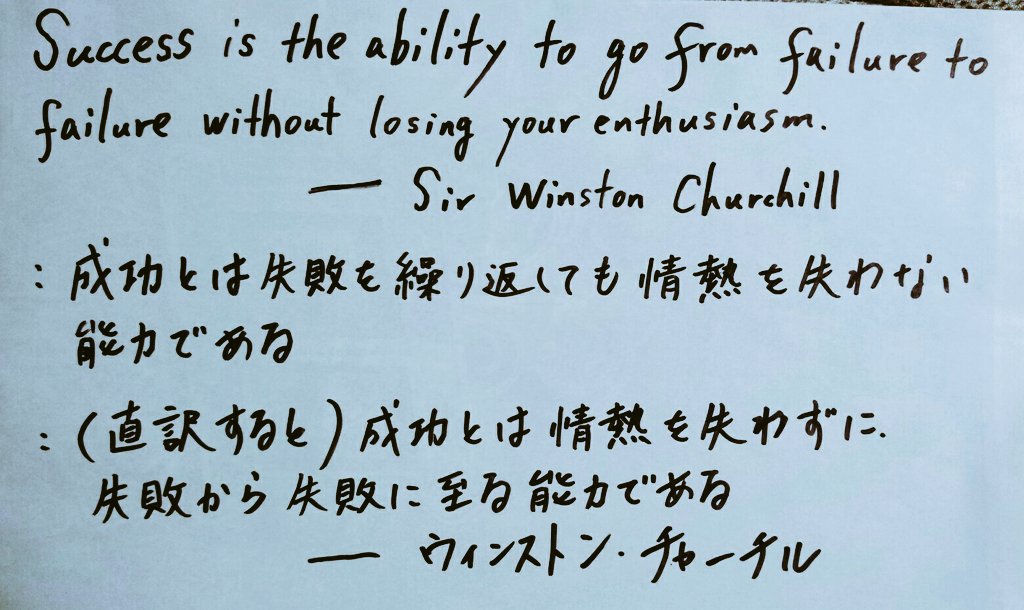 Success is the ability to go from failure to
failure without losing your enthusiasm.
— Sir Winston Churchill
: 成功とは失敗を繰り返しても情熱を失わない
能力である
: (直訳すると) 成功とは情熱を失わずに、
失敗から失敗に至る能力である
— ウィンストン・チャーチル